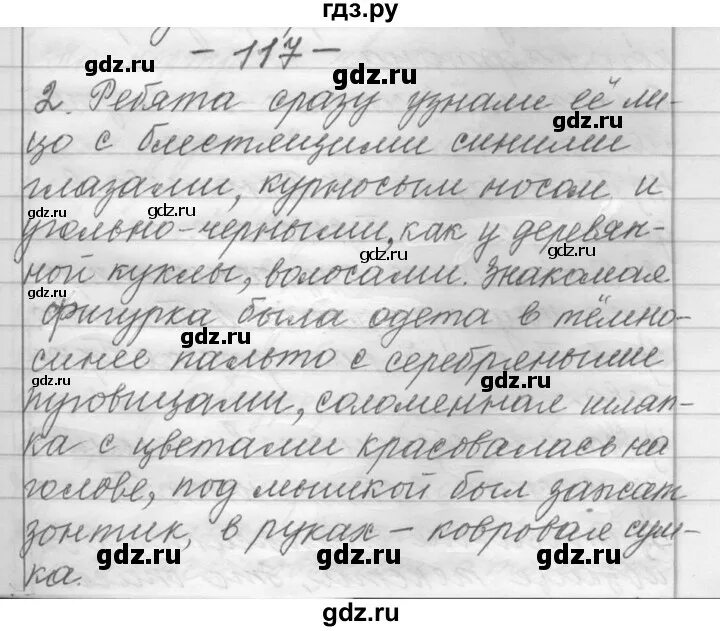 гдз.ру
- 117 -
gdz.ru gdz.ru
2. Ребята сразу узнали её ли-
gdz.ru
цо с блестящими синими
глазами, курносым носом и
gdz.ru gdz.ru
угольно-черными, как у деревян-
gdz.ru
ной куклы, волосами. Знакомая
gdz.ru
фигурка была одета в тёмно-
gdz.ru
синее пальто с серебряными
gdz.ru gdz.ru
пуговицами, соломенная шляп-
ка с цветами красовалась на
голове, под мышкой был зажат
зонтик, в руках - ковровая сум-
gdz.ru gdz.ru
ка.
gdz.ru